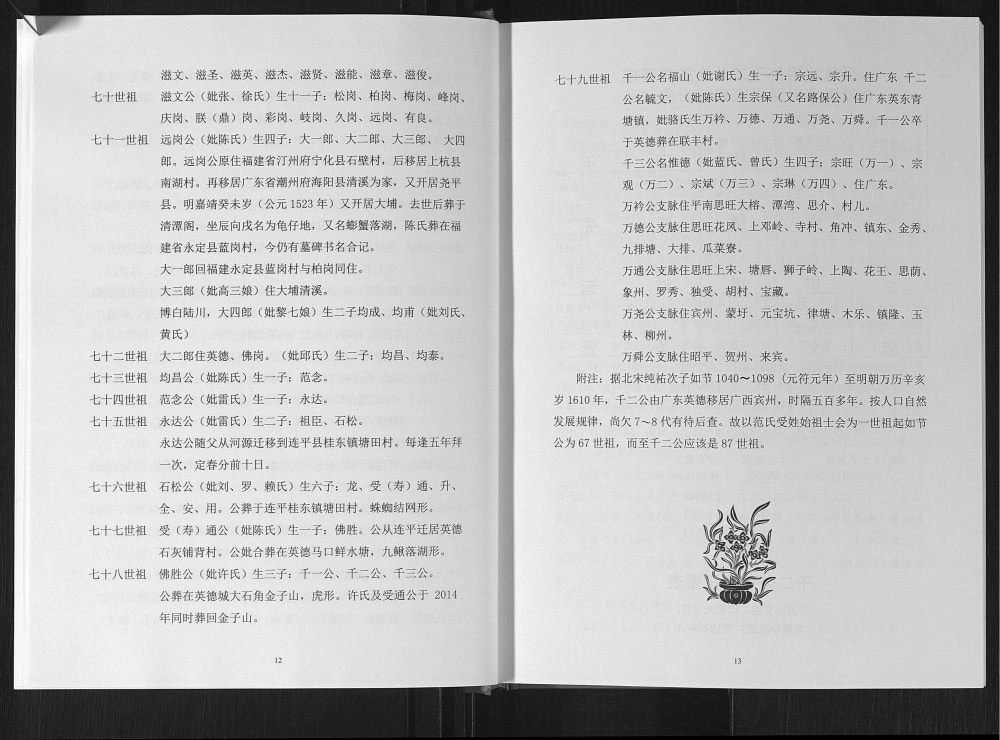 滋文、滋圣、滋英、滋杰、滋贤、滋能、滋章、滋俊。
七十世祖 滋文公（妣张、徐氏）生十一子：松岗、柏岗、梅岗、峰岗、
庆岗、朕（鼎）岗、彩岗、岐岗、久岗、远岗、有良。
七十一世祖 远岗公（妣陈氏）生四子：大一郎、大二郎、大三郎、 大四
郎。远岗公原住福建省汀州府宁化县石壁村，后移居上杭县
南湖村。再移居广东省潮州府海阳县清溪为家，又开居尧平
县。明嘉靖癸未岁（公元 1523 年）又开居大埔。去世后葬于
清潭阁，坐辰向戌名为龟仔地，又名蟛蟹落湖，陈氏葬在福
建省永定县蓝岗村，今仍有墓碑书名合记。
大一郎回福建永定县蓝岗村与柏岗同住。
大三郎（妣高三娘）住大埔清溪。
博白陆川，大四郎（妣黎七娘）生二子均成、均甫（妣刘氏、
黄氏）
七十二世祖 大二郎住英德、佛岗。（妣邱氏）生二子：均昌、均泰。
七十三世祖 均昌公（妣陈氏）生一子：范念。
七十四世祖 范念公（妣雷氏）生一子：永达。
七十五世祖 永达公（妣雷氏）生二子：祖臣、石松。
永达公随父从河源迁移到连平县桂东镇塘田村。每逢五年拜
一次，定春分前十日。
七十六世祖 石松公（妣刘、罗、赖氏）生六子：龙、受（寿）通、升、
全、安、用。公葬于连平桂东镇塘田村。蛛蜘结网形。
七十七世祖 受（寿）通公（妣陈氏）生一子：佛胜。公从连平迁居英德
石灰铺背村。公妣合葬在英德马口鲜水塘，九鳅落湖形。
七十八世祖 佛胜公（妣许氏）生三子：千一公、千二公、千三公。
公葬在英德城大石角金子山，虎形。许氏及受通公于 2014
年同时葬回金子山。
12
七十九世祖 千一公名福山（妣谢氏）生一子：宗远、宗升。住广东 千二
公名毓文，（妣陈氏）生宗保（又名路保公）住广东英东青
塘镇，妣骆氏生万衿、万德、万通、万尧、万舜。千一公卒
于英德葬在联丰村。
千三公名惟德（妣蓝氏、曾氏）生四子：宗旺（万一）、宗
观（万二）、宗斌（万三）、宗琳（万四）、住广东。
万衿公支脉住平南思旺大榕、潭湾、思介、村儿。
万德公支脉住思旺花凤、上邓岭、寺村、角冲、镇东、金秀、
九排塘、大排、瓜菜寮。
万通公支脉住思旺上宋、塘唇、狮子岭、上陶、花王、思荫、
象州、罗秀、独受、胡村、宝藏。
万尧公支脉住宾州、蒙圩、元宝坑、律塘、木乐、镇隆、玉
林、柳州。
万舜公支脉住昭平、贺州、来宾。
附注：据北宋纯祐次子如节 1040～1098 (元符元年）至明朝万历辛亥
岁 1610 年，千二公由广东英德移居广西宾州，时隔五百多年。按人口自然
发展规律，尚欠 7～8 代有待后查。故以范氏受姓始祖士会为一世祖起如节
公为 67 世祖，而至千二公应该是 87 世祖。
13